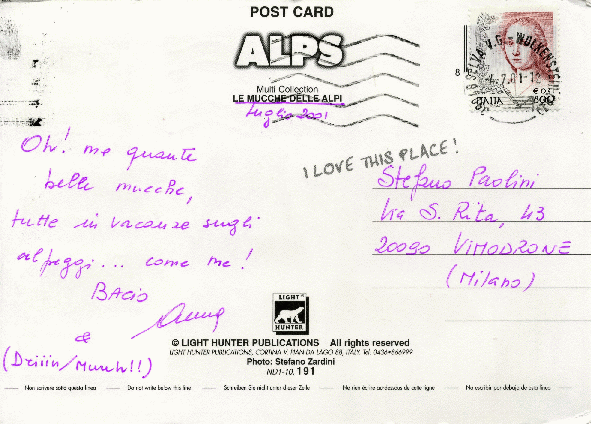 POST CARD
ALPS
Multi Collection
LE MUCCHE DELLE ALPI
Luglio 2001
I LOVE THIS PLACE!
Oh! ma quante
belle mucche,
tutte in vacanze sugli
alpeggi... come me!
BACIO
&
(Driiin/Muuuh!!)
Stefano Paolini
Via S. Rita, 43
20090 VIMODRONE
(Milano)
SELVA V.G. - WOLKENSTEIN
ITALIA
800
LIGHT
HUNTER
© LIGHT HUNTER PUBLICATIONS All rights reserved
LIGHT HUNTER PUBLICATIONS, CORTINA V. PIAN DA LAGO 68, ITALY. Tel. 0436•866999
Photo: Stefano Zardini
ND1-10. 191
Non scrivere sotto questa linea
Do not write below this line
Schreiben Sie nicht unter dieser Zeile
Ne rien écrire au-dessous de cette ligne
No escribir por debajo de esta linea